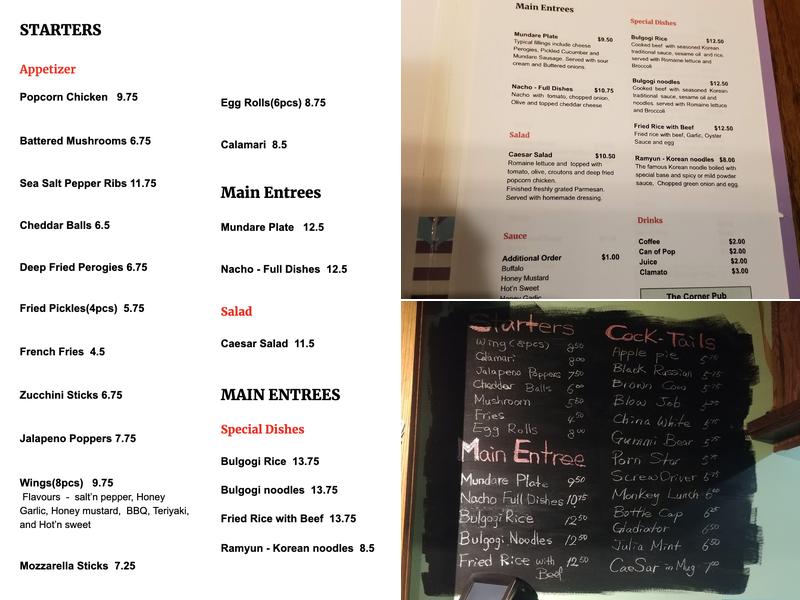 STARTERS
Appetizer
Popcorn Chicken 9.75
Battered Mushrooms 6.75
Sea Salt Pepper Ribs 11.75
Cheddar Balls 6.5
Deep Fried Perogies 6.75
Fried Pickles(4pcs) 5.75
French Fries 4.5
Zucchini Sticks 6.75
Jalapeno Poppers 7.75
Wings(8pcs) 9.75
Flavours - salt'n pepper, Honey
Garlic, Honey mustard, BBQ, Teriyaki,
and Hot'n sweet
Mozzarella Sticks 7.25
Egg Rolls(6pcs) 8.75
Calamari 8.5
Main Entrees
Mundare Plate 12.5
Nacho - Full Dishes 12.5
Salad
Caesar Salad 11.5
MAIN ENTREES
Special Dishes
Bulgogi Rice 13.75
Bulgogi noodles 13.75
Fried Rice with Beef 13.75
Ramyun - Korean noodles 8.5
Main Entrees
Mundare Plate $9.50
Typical fillings include cheese
Perogies, Pickled Cucumber and
Mundare Sausage. Served with sour
cream and Buttered onions.
Nacho - Full Dishes $10.75
Nacho with tomato, chopped onion,
Olive and topped cheddar cheese
Salad
Caesar Salad $10.50
Romaine lettuce and topped with
tomato, olive, croutons and deep fried
popcorn chicken.
Finished freshly grated Parmesan.
Served with homemade dressing.
Sauce
Additional Order $1.00
Buffalo
Honey Mustard
Hot'n Sweet
Honey Garlic
Special Dishes
Bulgogi Rice $12.50
Cooked beef with seasoned Korean
traditional sauce, sesame oil and rice.
served with Romaine lettuce and
Broccoli
Bulgogi noodles $12.50
Cooked beef with seasoned Korean
traditional sauce, sesame oil and
noodles. served with Romaine lettuce
and Broccoli
Fried Rice with Beef $12.50
Fried rice with beef, Garlic, Oyster
Sauce and egg
Ramyun - Korean noodles $8.00
The famous Korean noodle boiled with
special base and spicy or mild powder
sauce, Chopped green onion and egg.
Drinks
Coffee $2.00
Can of Pop $2.00
Juice $2.00
Clamato $3.00
The Corner Pub
Starters
Wing (8pcs) 8.50
Calamari 8.00
Jalapeno Poppers 7.50
Cheddar Balls 6.00
Mushroom 5.50
Fries 4.50
Egg Rolls 8.00
Main Entree
Mundare Plate 9.50
Nacho Full Dishes 10.75
Bulgogi Rice 12.50
Bulgogi Noodles 12.50
Fried Rice with 12.50
Beef
Cock-Tails
Apple pie 5.75
Black Russian 5.75
Brown Cow 5.75
Blow Job 5.75
China White 5.75
Gummi Bear 5.75
Porn Star 5.75
Screw Driver 5.75
Monkey Lunch 6.00
Bottle Cap 6.25
Gladiator 6.50
Julia Mint 6.50
CaeSar in Mug 7.00